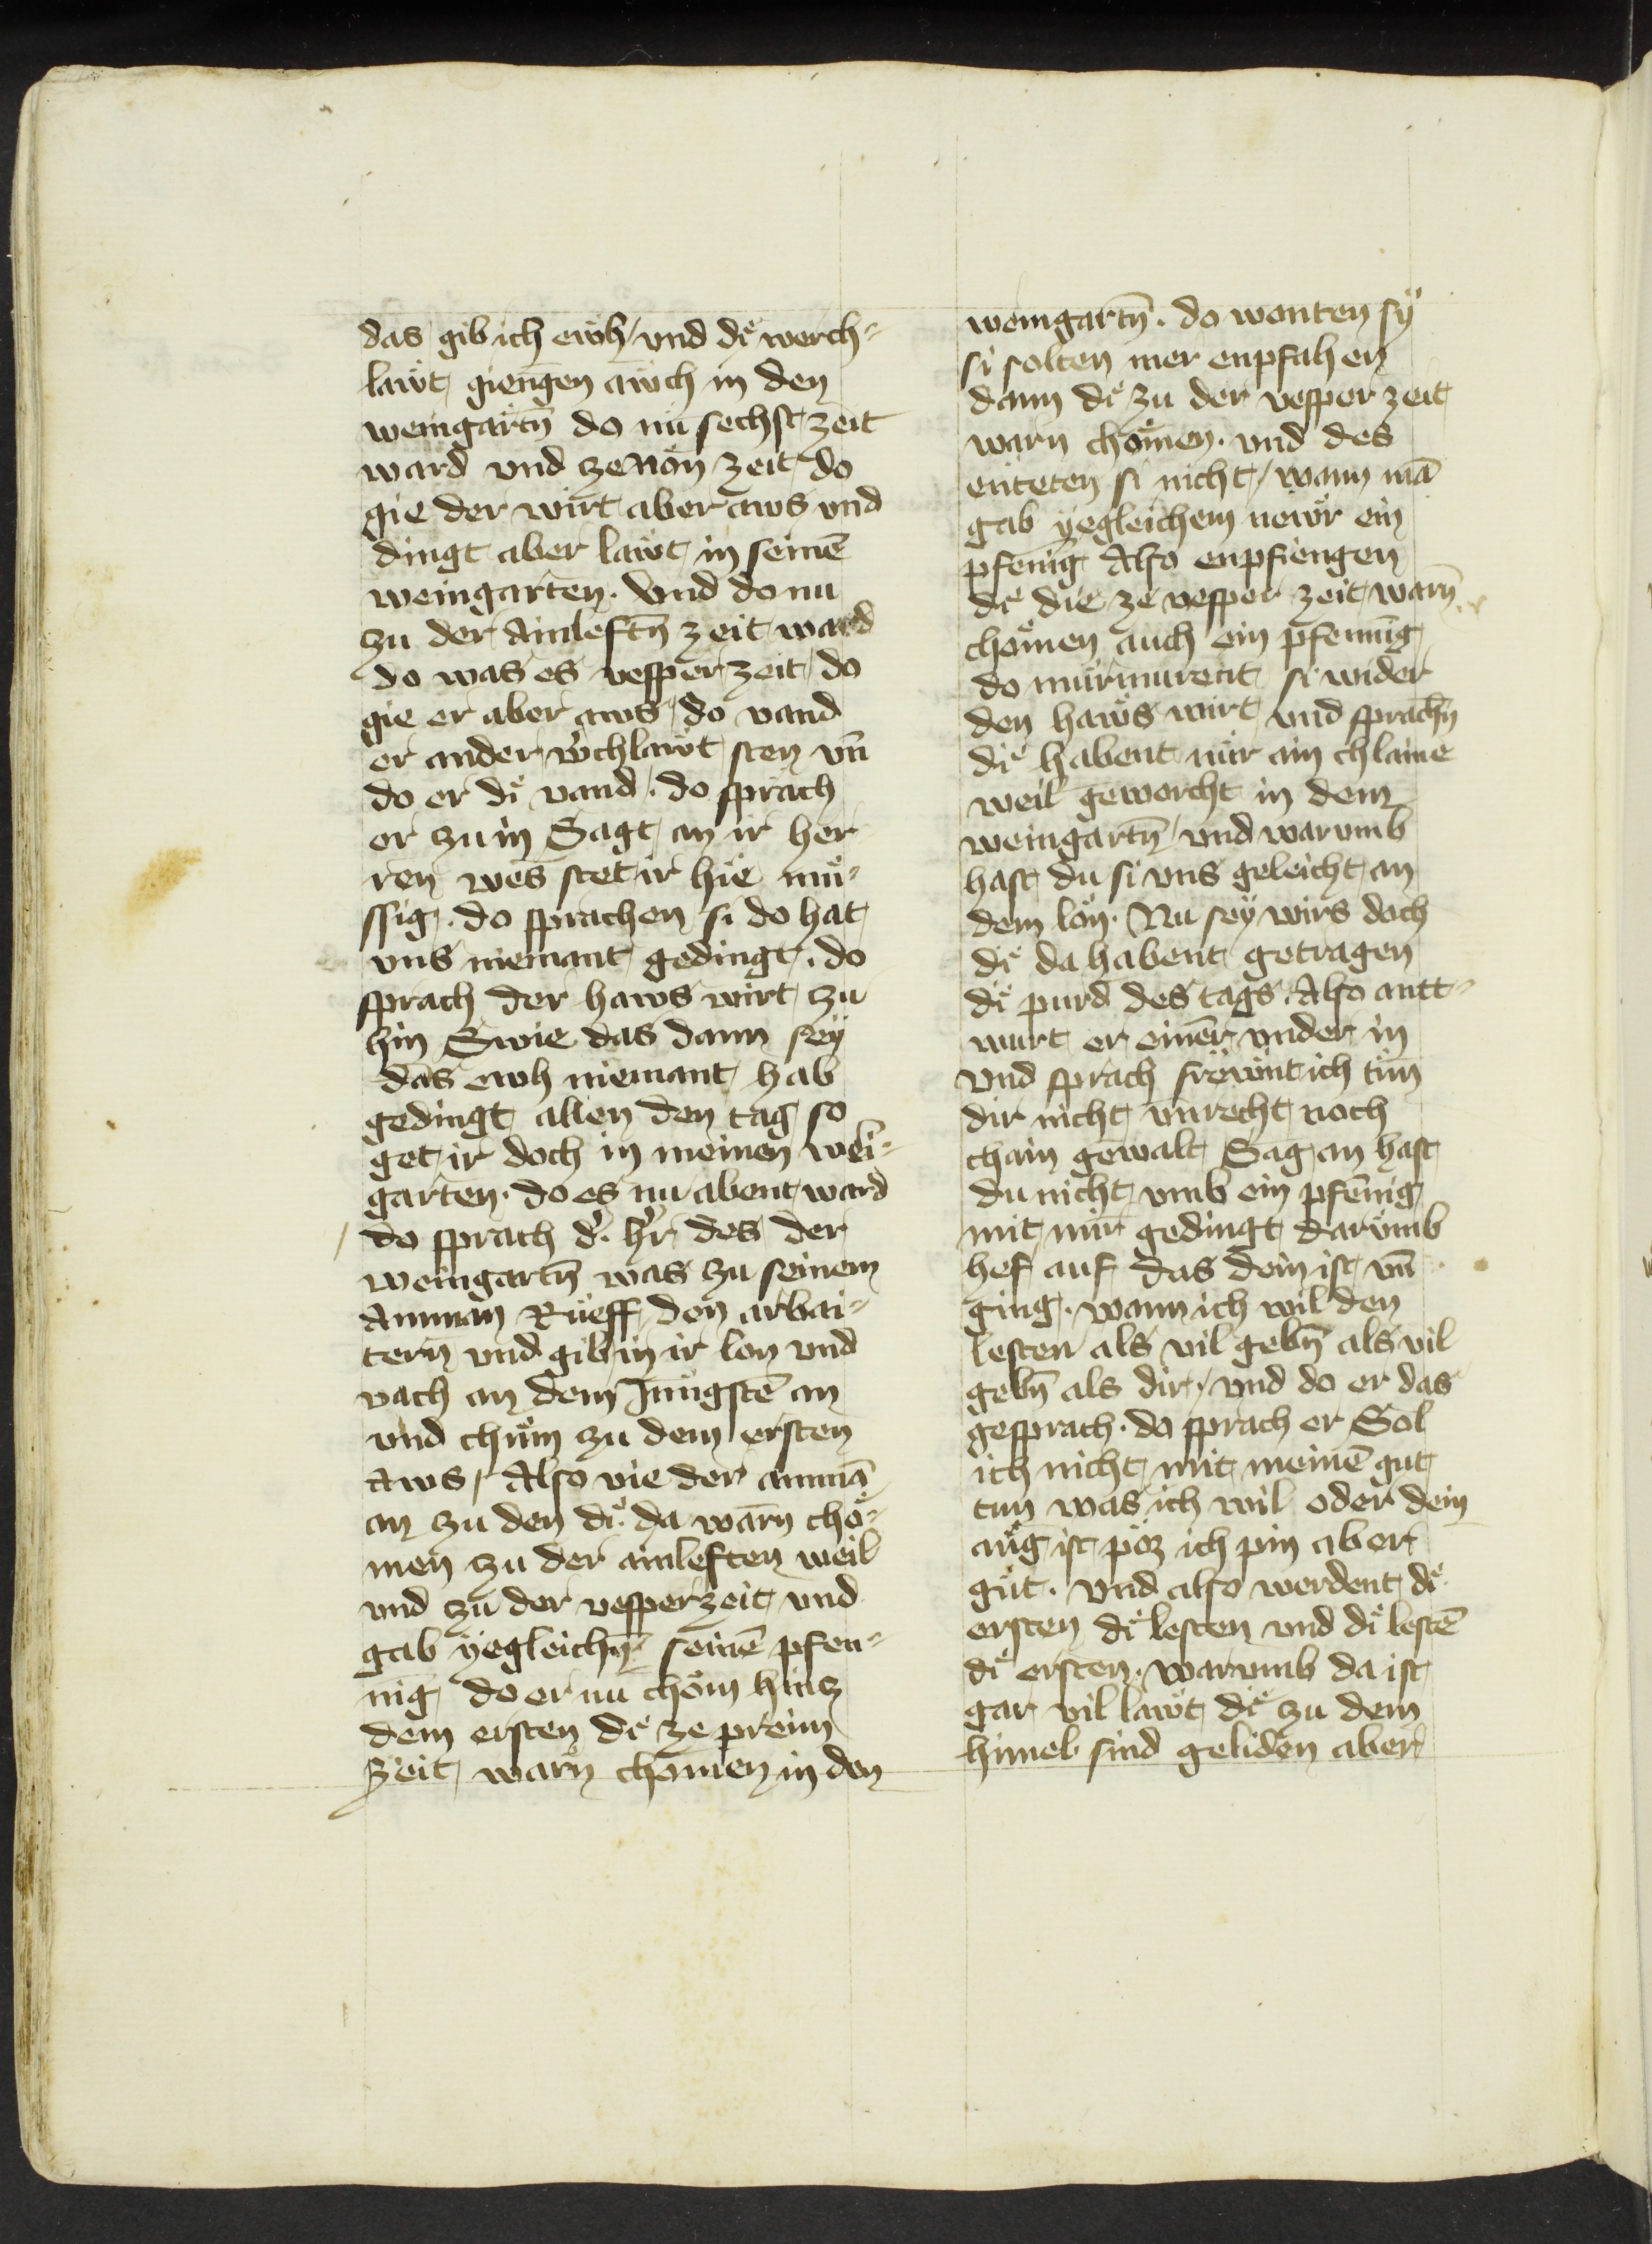 das gib ich ewh / vnd dͤi werch⸗
lawͤt giengen awch in den
weingartn̄ do nu sechst zeit
ward vnd ze non zeit do
gie der wirt aber aws vnd
dingt aber lawͤt in seinē
weingarten. Vnd do nu
zu der Ainleftn̄ zeit ward
do was es vesper zeit / do
gie er aber aws / do vand
er ander w̓chlawͤt sten vn̄
do er dͤi vand. do sprach
er zu in Sagt an ir her
ren wes stet ir hie muͤ⸗
ssig. do sprachen si do hat
vns niemant gedingt. do
sprach der haws wirt zu
hin Swie das dann sey
das ewh niemant hab
gedingt allen den tag so
get ir doch in meinen wei⸗
garten. do es nu abent ward
do sprach d̓. hr̓ des der
weingartn̄ was zu seinem
Amman Rueff den arbai⸗
tern vnd gib in ir lon vnd
vach an dem Jungstē an
vnd chum zu dem ersten
Aws / Also vie der ammā
an zu den dͤi da warn choͤ⸗
men zu der ainleften weil
vnd zu der vesperzeit vnd
gab yegleichn̄ seinē pfen⸗
nig do er nu chom hincz
dem ersten dͤi ze preim
Zeit warn chomen in den
weingartn̄. do wonten sy
si solten mer enpfahen
dann dͤi zu der vesper zeit
warn choͤmen. vnd des
enteten si nicht / wann mā
gab yegleichem newͤr ein
pfenig Also enpfiengen
dͤi die ze vesper zeit warn̄
choͤmen auch ein pfennig
do murmurent si wider
den haws wirt vnd sprachn̄
dͤi habent nur ain chlaine
weil geworcht in dem
weingartn̄ / vnd warumb
hast du si vns geleicht an
dem lon. Nu sey wirs doch
dͤi da habent getragen
dͤi purd des tags. Also antt⸗
wurt er einer vnder in
vnd sprach frewͤnt ich tun
dir nicht vnrecht noch
chain gewalt Sag an hast
du nicht vmb ein pfenig
mit mir gedingt darumb
hef auf das dein ist vn̄
ging. wann ich wil den
lesten als vil gebn̄ als vil
gebn̄ als dir / vnd do er das
gesprach. do sprach er Sol
ich nicht mit meinē gut
tun was ich wil oder dein
aug ist poͤz ich pin aber
gut. vnd also werdent dͤi
ersten dͤi lesten vnd dͤi lestē
dͤi ersten. warumb da ist
gar vil lawͤt dͤi zu dem
himel sind geliden aber